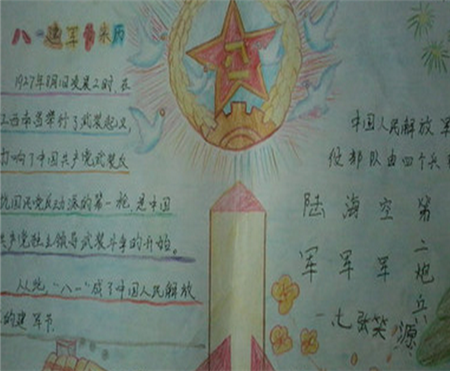 八一建军节来历
1927年8月1日凌晨2时,在
江西南昌举行了武装起义,
打响了中国共产党武装反
抗国民党反动派的第一枪,是中国
共产党独立领导武装斗争的开始。
从此"八一"成了中国人民解放
的建军节
八一
中国人民解放军
役部队由四个兵
陆海空第
军军军二
炮
兵
七 张笑源